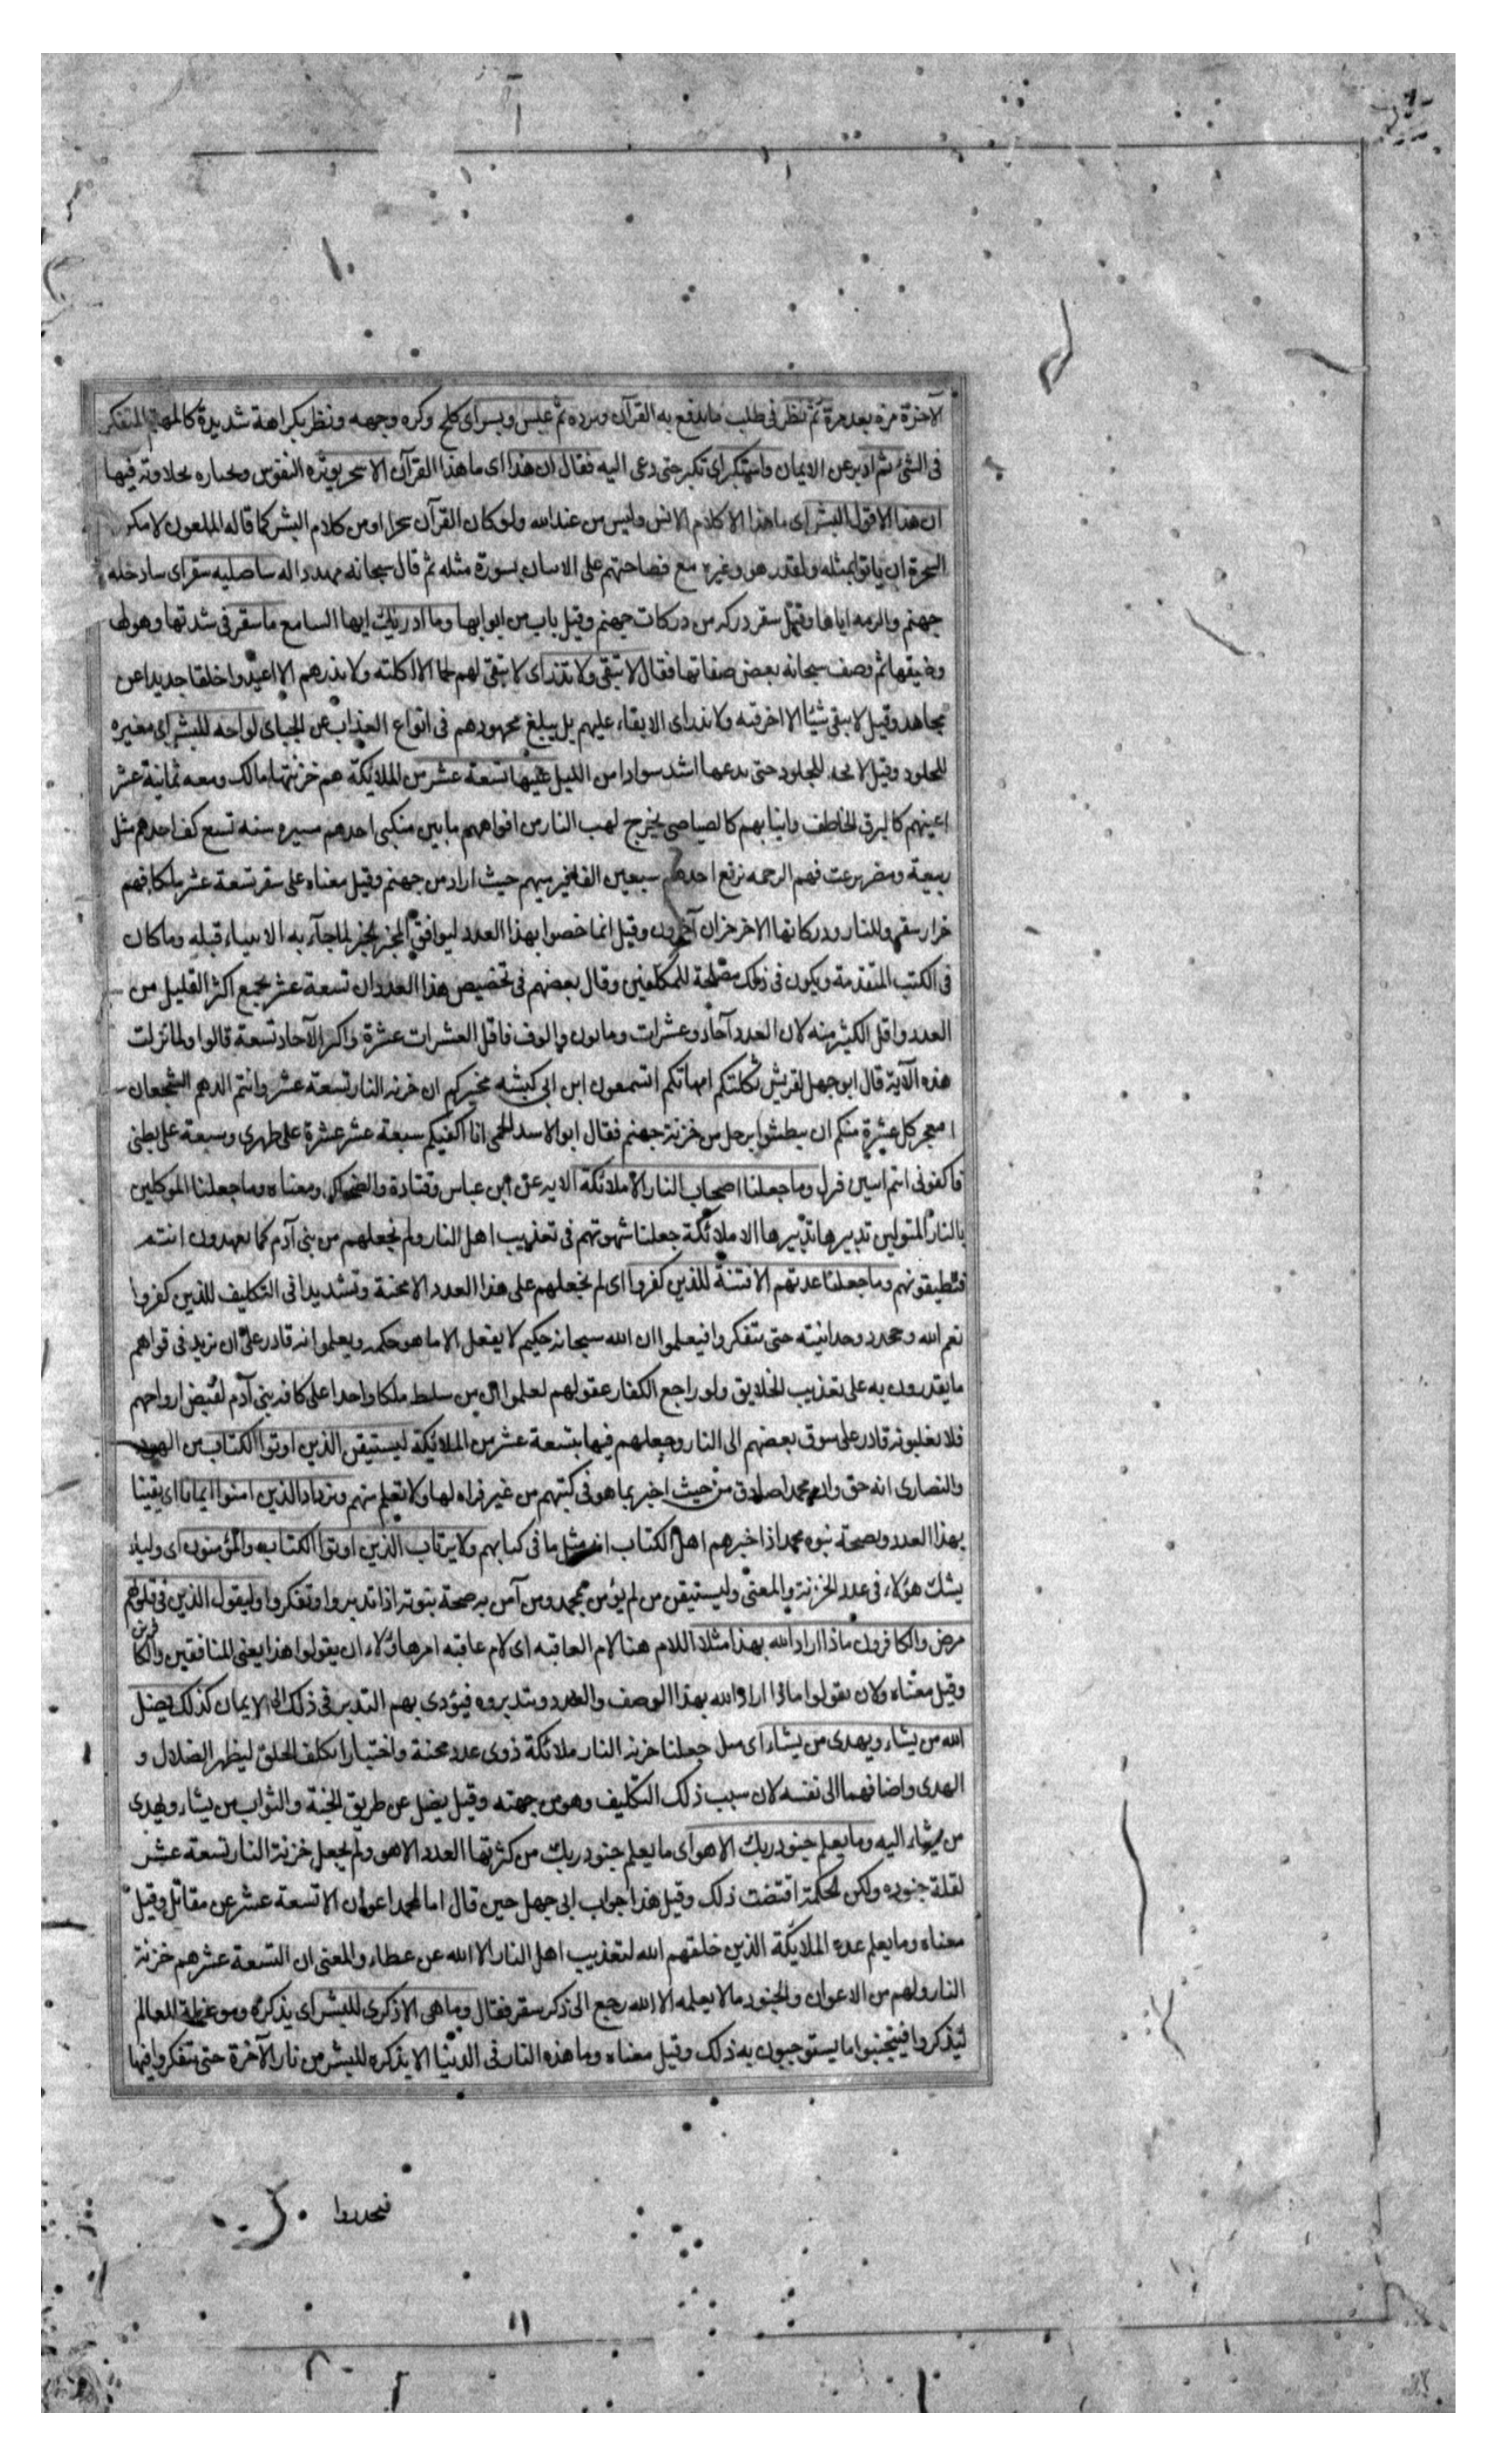 الآخرة مرة بعد مرة ثم نظر فى طلب ما يدفع به القرآن ويرده ثم عبس وبسر اى كلح وكره وجهه ونظر بكراهة شديدة كالمهتم المتفكر
فى الشئ ثم ادبر عن الايمان واستكبر اى تكبر حتى دعى اليه فقال ان هذا اى ما هذا القرآن الا سحر يؤثره النفوس وتختاره بحلاوته فيها
ان هذا الا قول البشر اى ما هذا الا كلام الانس وليس من عند الله ولو كان القرآن سحرا او من كلام البشر كما قاله الملعون لامكن
السحرة ان ياتوا بمثله ولقدر هو وغيره مع فصاحتهم على الاتيان بسورة مثله ثم قال سبحانه مهددا له ساصليه سقر اى سادخله
جهنم والزمه اياها وقيل سقر دركه من دركات جهنم وقيل باب من ابوابها وما ادريك ايها السامع ما سقر فى شدتها وهولها
وضيقها ثم وصف سبحانه بعض صفاتها فقال لا تبقى ولا تذر اى لا تبقى لهم لحما الا اكلته ولا تذرهم الا اعيدوا خلقا جديدا عن
مجاهد وقيل لا تبقى شيئا الا احرقته ولا تذر اى الا بقاء عليهم بل يبلغ مجهودهم فى انواع العذاب عن الجباى لواحه للبشر اى مغيره
للجلود وقيل لافحه للجلود حتى تدعها اشد سوادا من الليل عليها تسعة عشر من الملائكة هم خزنتها مالك ومعه ثمانية عشر
اعينهم كالبرق الخاطف وانيابهم كالصياصى يخرج لهب النار من افواههم ما بين منكبى احدهم مسيره سنه تسع كف احدهم مثل
ربيعة ومضر نزعت فيهم الرحمه يرفع احدهم سبعين الفا فيرميهم حيث اراد من جهنم وقيل معناه على سقر تسعة عشر ملكا فهم
خزان سقر وللنار ودركاتها الاخر خزان آخرون وقيل انما خصوا بهذا العدد ليوافق المخبر الخبر لما جآء به الانبياء قبله وما كان
فى الكتب المتقدمة ويكون فى ذلك مصلحة للمكلفين وقال بعضهم فى تخصيص هذا العدد ان تسعة عشر يجمع اكثر القليل من
العدد واقل الكثير منه لان العدد آحاد وعشرات ومئون والوف فاقل العشرات عشرة واكثر الآحاد تسعة قالوا ولما نزلت
هذه الآية قال ابو جهل لقريش ثكلتكم امهاتكم اتسمعون ابن ابى كبشه يخبركم ان خزنه النار تسعة عشر وانتم الدهم الشجعان
ايعجز كل عشرة منكم ان يبطشوا برجل من خزنة جهنم فقال ابو الاسد الجمحى انا اكفيكم سبعة عشر عشرة على ظهرى وسبعة على بطنى
فاكفونى انتم اثنين فنزل وما جعلنا اصحاب النار الا ملائكة الايه عن ابن عباس وقتادة والضحاك ومعناه وما جعلنا الموكلين
بالنار المتولين تدبيرها الا ملائكة جعلنا شهوتهم فى تعذيب اهل النار ولم نجعلهم من بنى آدم كما تعهدون انتم
فتطيقونهم وما جعلنا عدتهم الا فتنة للذين كفروا اى لم نجعلهم على هذا العدد الا محنة وتشديدا فى التكليف للذين كفروا
نعم الله وجحدوا وحدانيته حتى يتفكروا فيعلموا ان الله سبحانه حكيم لا يفعل الا ما هو حكمه ويعلموا انه قادر على ان يزيد فى قواهم
ما يقدرون به على تعذيب الخلايق ولو راجع الكفار عقولهم لعلموا ان من سلط ملكا واحدا على كافة بنى آدم لقبض ارواحهم
فلا يغلبونه قادر على سوق بعضهم الى النار وجعلهم فيها بتسعة عشر من الملائكة ليستيقن الذين اوتوا الكتاب من اليهود
والنصارى انه حق وان محمدا صادق من حيث اخبر بما هو فى كتبهم من غير قراءه لها ولا تعلم منهم ويزداد الذين امنوا ايمانا اى يقينا
بهذا العدد وبصحة نبوه محمد اذا اخبرهم اهل الكتاب انه مثل ما فى كتابهم ولا يرتاب الذين اوتوا الكتاب والمؤمنون اى ولئلا
يشك هؤلاء فى عدد الخزنة والمعنى وليستيقن من لم يؤمن بمحمد ومن آمن به صحة نبوته اذا تدبروا وتفكروا وليقول الذين فى قلوبهم
مرض والكافرون ماذا اراد الله بهذا مثلا اللام هنا لام العاقبه اى لام عاقبه امر هاؤلاء ان يقولوا هذا يعنى المنافقين والكافرين
وقيل معناه ولان يقولوا ماذا اراد الله بهذا الوصف والعدد ويتدبروه فيؤدى بهم التدبر فى ذلك الى الايمان كذلك يضل
الله من يشاء ويهدى من يشاء اى مثل جعلنا خزنه النار ملائكة ذوى عدد محنة واختبارا نكلف الخلق ليظهر الضلال و
الهدى واضافهما الى نفسه لان سبب ذلك التكليف وهو من جهته وقيل يضل عن طريق الجنة والثواب من يشاء ويهدى
من يشاء اليه وما يعلم جنود ربك الا هو اى ما يعلم جنود ربك من كثرتها العدد الا هو ولم يجعل خزنة النار تسعة عشر
لقلة جنوده ولكن الحكمة اقتضت ذلك وقيل هذا جواب ابى جهل حين قال اما لمحمد اعوان الا تسعة عشر عن مقاتل وقيل
معناه وما يعلم عده الملائكة الذين خلقهم الله لتعذيب اهل النار الا الله عن عطاء والمعنى ان التسعة عشر هم خزنة
النار ولهم من الاعوان والجنود ما لا يعلمه الا الله رجع الى ذكر سقر فقال وما هى الا ذكرى للبشر اى يذكره وموعظة للعالم
ليذكروا فيتجنبوا ما يستوجبون به ذلك وقيل معناه وما هذه النار فى الدنيا الا يذكره للبشر من نار الآخرة حتى يتفكروا فيها
فيحذروا